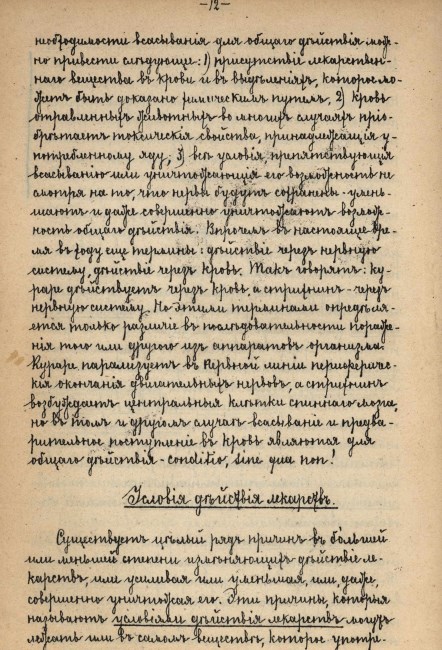 -12-
необходимости всасыванія для общаго дѣйствія мож-
но привести слѣдующее: 1) присутствіе лекарствен-
наго вещества въ крови и въ выдѣленіяхъ, которое мо-
жетъ быть доказано химическимъ путемъ, 2) кровь
отравленныхъ животныхъ во многихъ случаяхъ прiо-
брѣтаетъ токсическія свойства, принадлежащія у-
потребленному яду, 3) всѣ условія, препятствующія
всасыванію или уничтожающія его возможность не
смотря на то, что нервы будутъ сохранены - умень-
шаютъ и даже совершенно уничтожаютъ возмож-
ность общаго дѣйствія. Впрочемъ въ настоящее вре-
мя въ ходу еще термины: дѣйствіе черезъ нервную
систему, дѣйствіе черезъ кровь. Такъ говорятъ: ку-
раре дѣйствуетъ черезъ кровь, а стрихнинъ - черезъ
нервную систему. Но этими терминами опредѣля-
ется только различіе въ послѣдовательности пораже-
нія того или другого изъ аппаратовъ организма.
Кураре парализуетъ въ первой линіи периферичес-
кія окончанія двигательныхъ нервовъ, а стрихнинъ
возбуждаетъ центральныя клѣтки спиннаго мозга,
но въ томъ и другомъ случаѣ всасываніе и предва-
рительное поступленіе въ кровь являются для
общаго дѣйствія - conditio, sine qua non!
Условія дѣйствія лекарствъ.
Существуетъ цѣлый рядъ причинъ въ большей
или меньшей степени измѣняющихъ дѣйствіе ле-
карствъ, или усиливая или уменьшая, или, даже,
совершенно уничтожая его. Эти причины, которыя
называютъ условіями дѣйствія лекарствъ могутъ
лежать или въ самомъ веществѣ, которое употре-